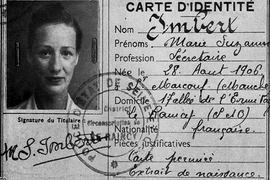 CARTE D'IDENTITÉ
Nom Imbert
Prénoms Marie Suzanne
Profession Secrétaire
Née le 28 Août 1906
Domicile 17 allée de l'Ermitage
le Raincy (S et O)
Nationalité française
Pièces justificatives
Carte périmée
Extrait de naissance.
Signature du Titulaire:
M.S. Imbert
LE RAINCY